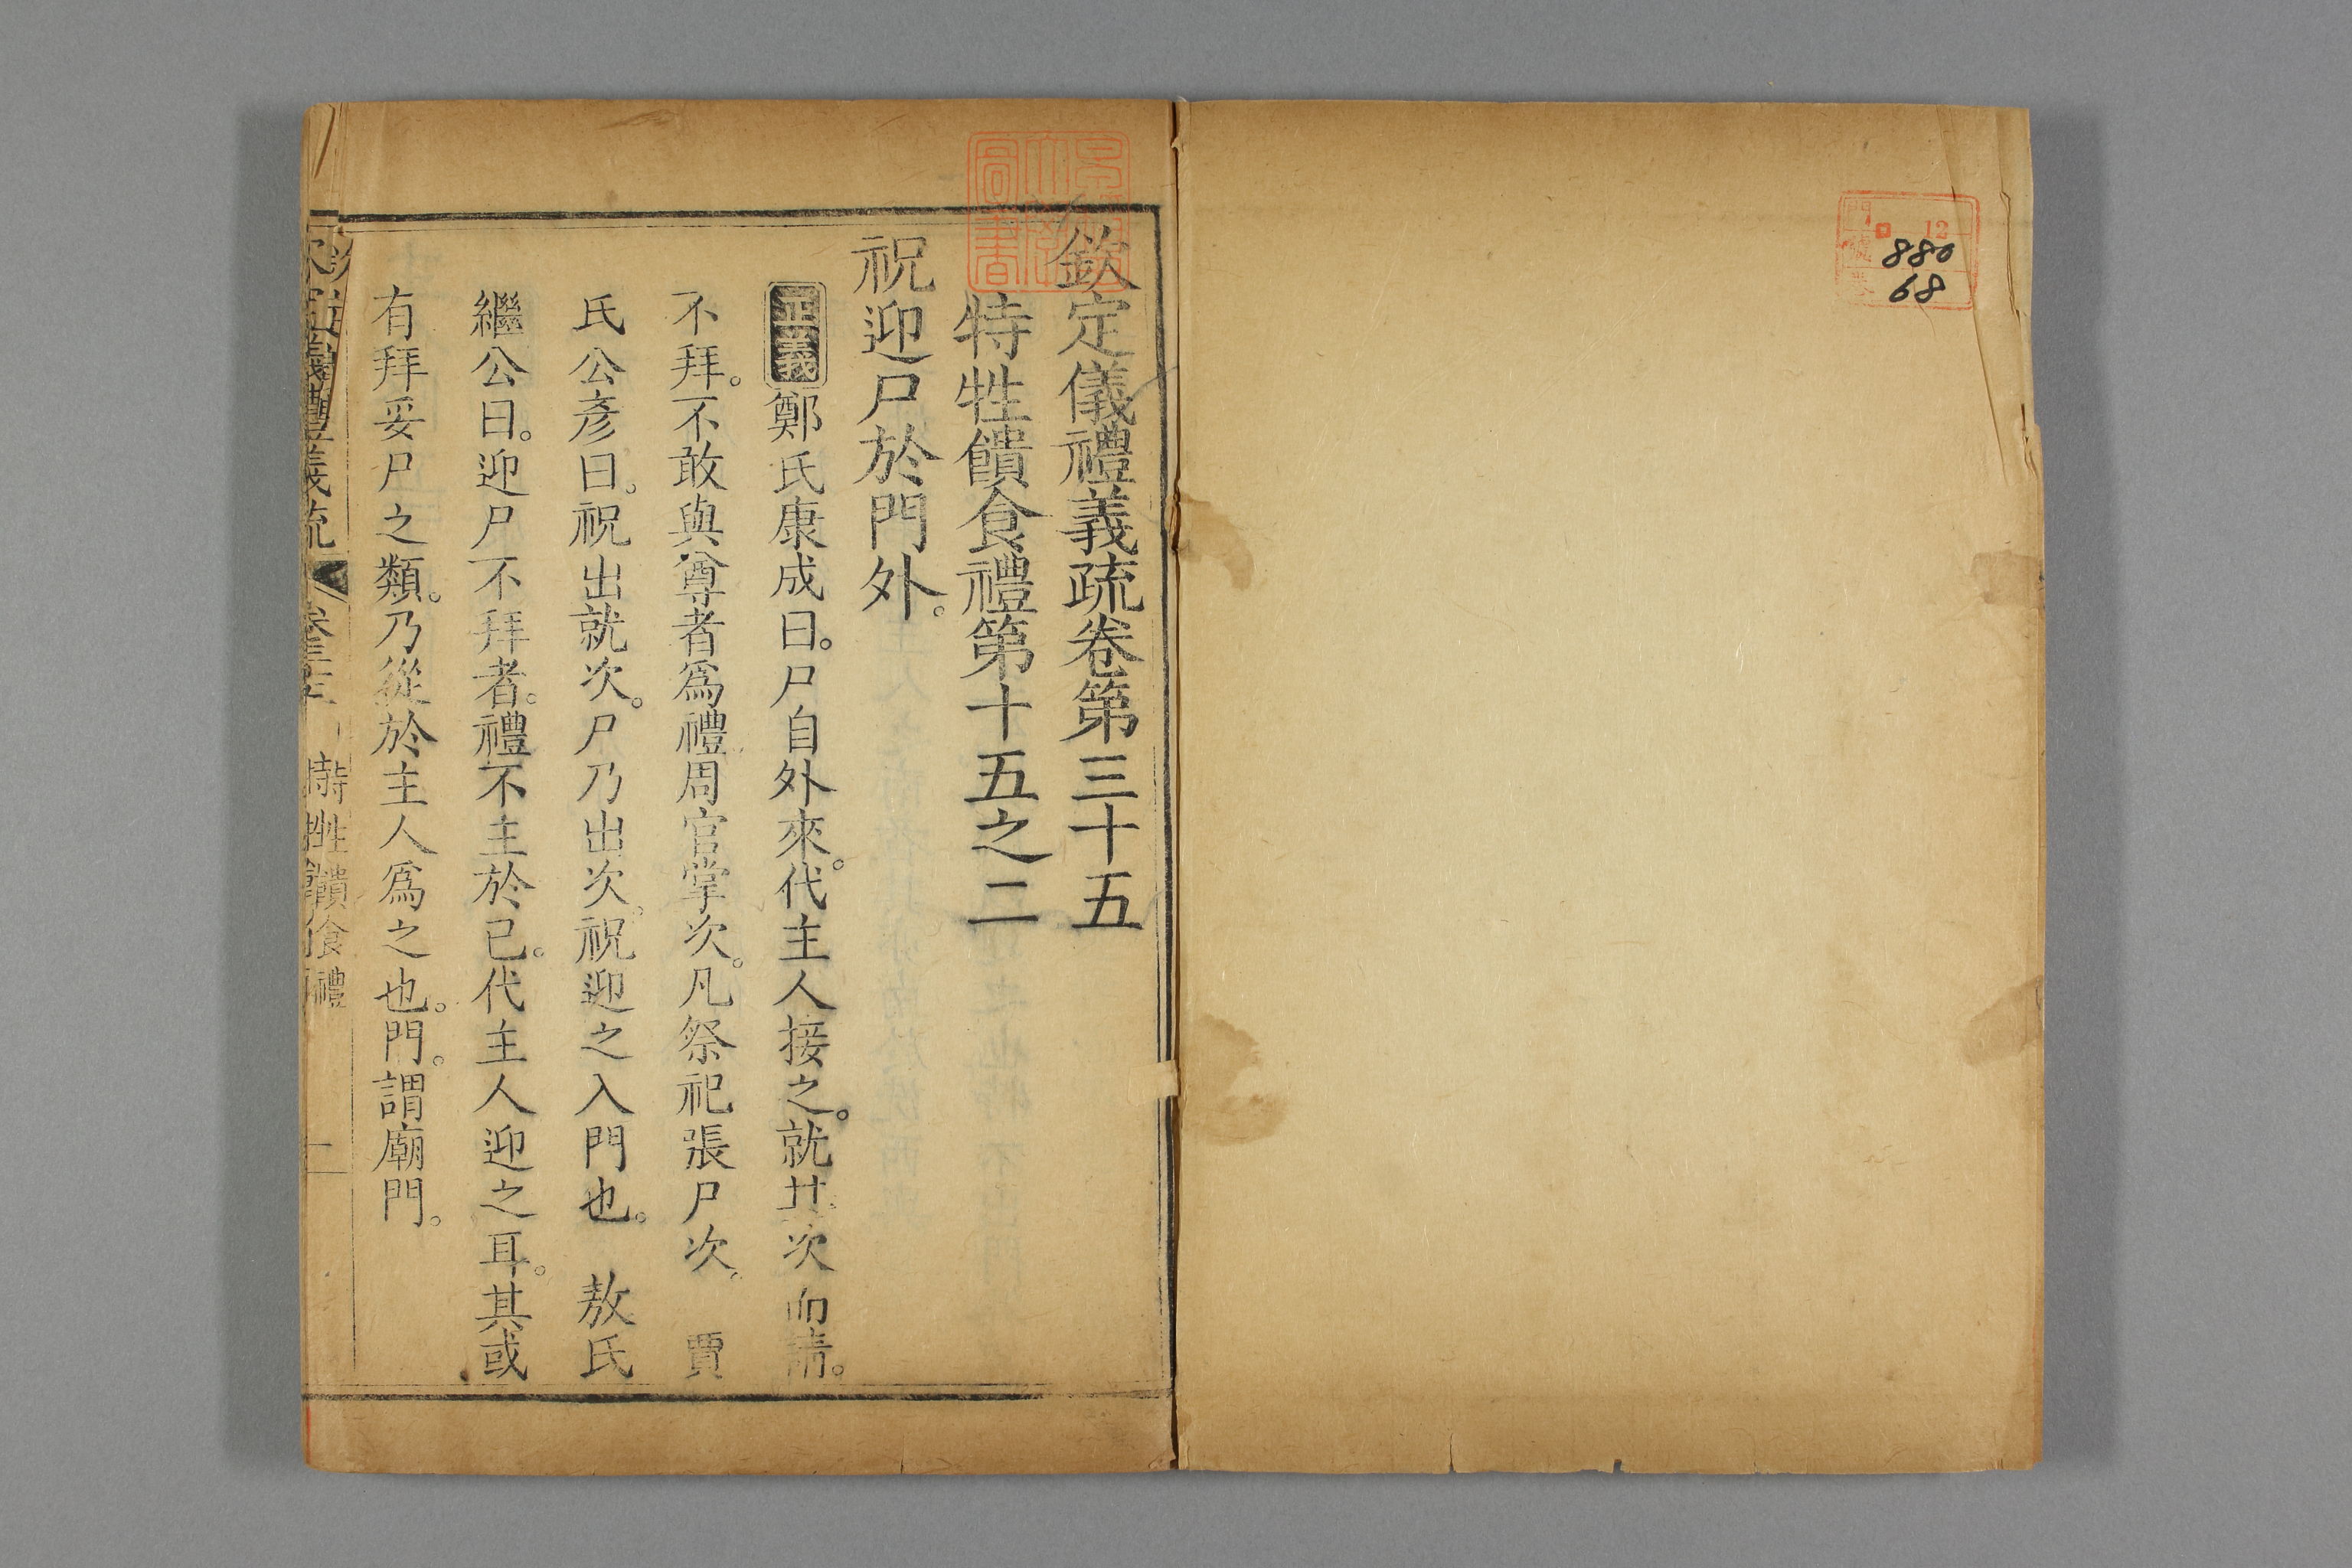 門 12
號 880
68
欽定儀禮義疏卷第三十五
特牲饋食禮第十五之二
祝迎尸於門外。
正義鄭氏康成曰。尸自外來。代主人接之。就其次而請。
不拜。不敢與尊者爲禮周官掌次。凡祭祀張尸次。 賈
氏公彥曰。祝出就次。尸乃出次。祝迎之入門也。 敖氏
繼公曰。迎尸不拜者。禮不主於己。代主人迎之耳。其或
有拜妥尸之類。乃從於主人爲之也。門。謂廟門。
儀禮義疏 卷三十五 特牲饋食禮 一